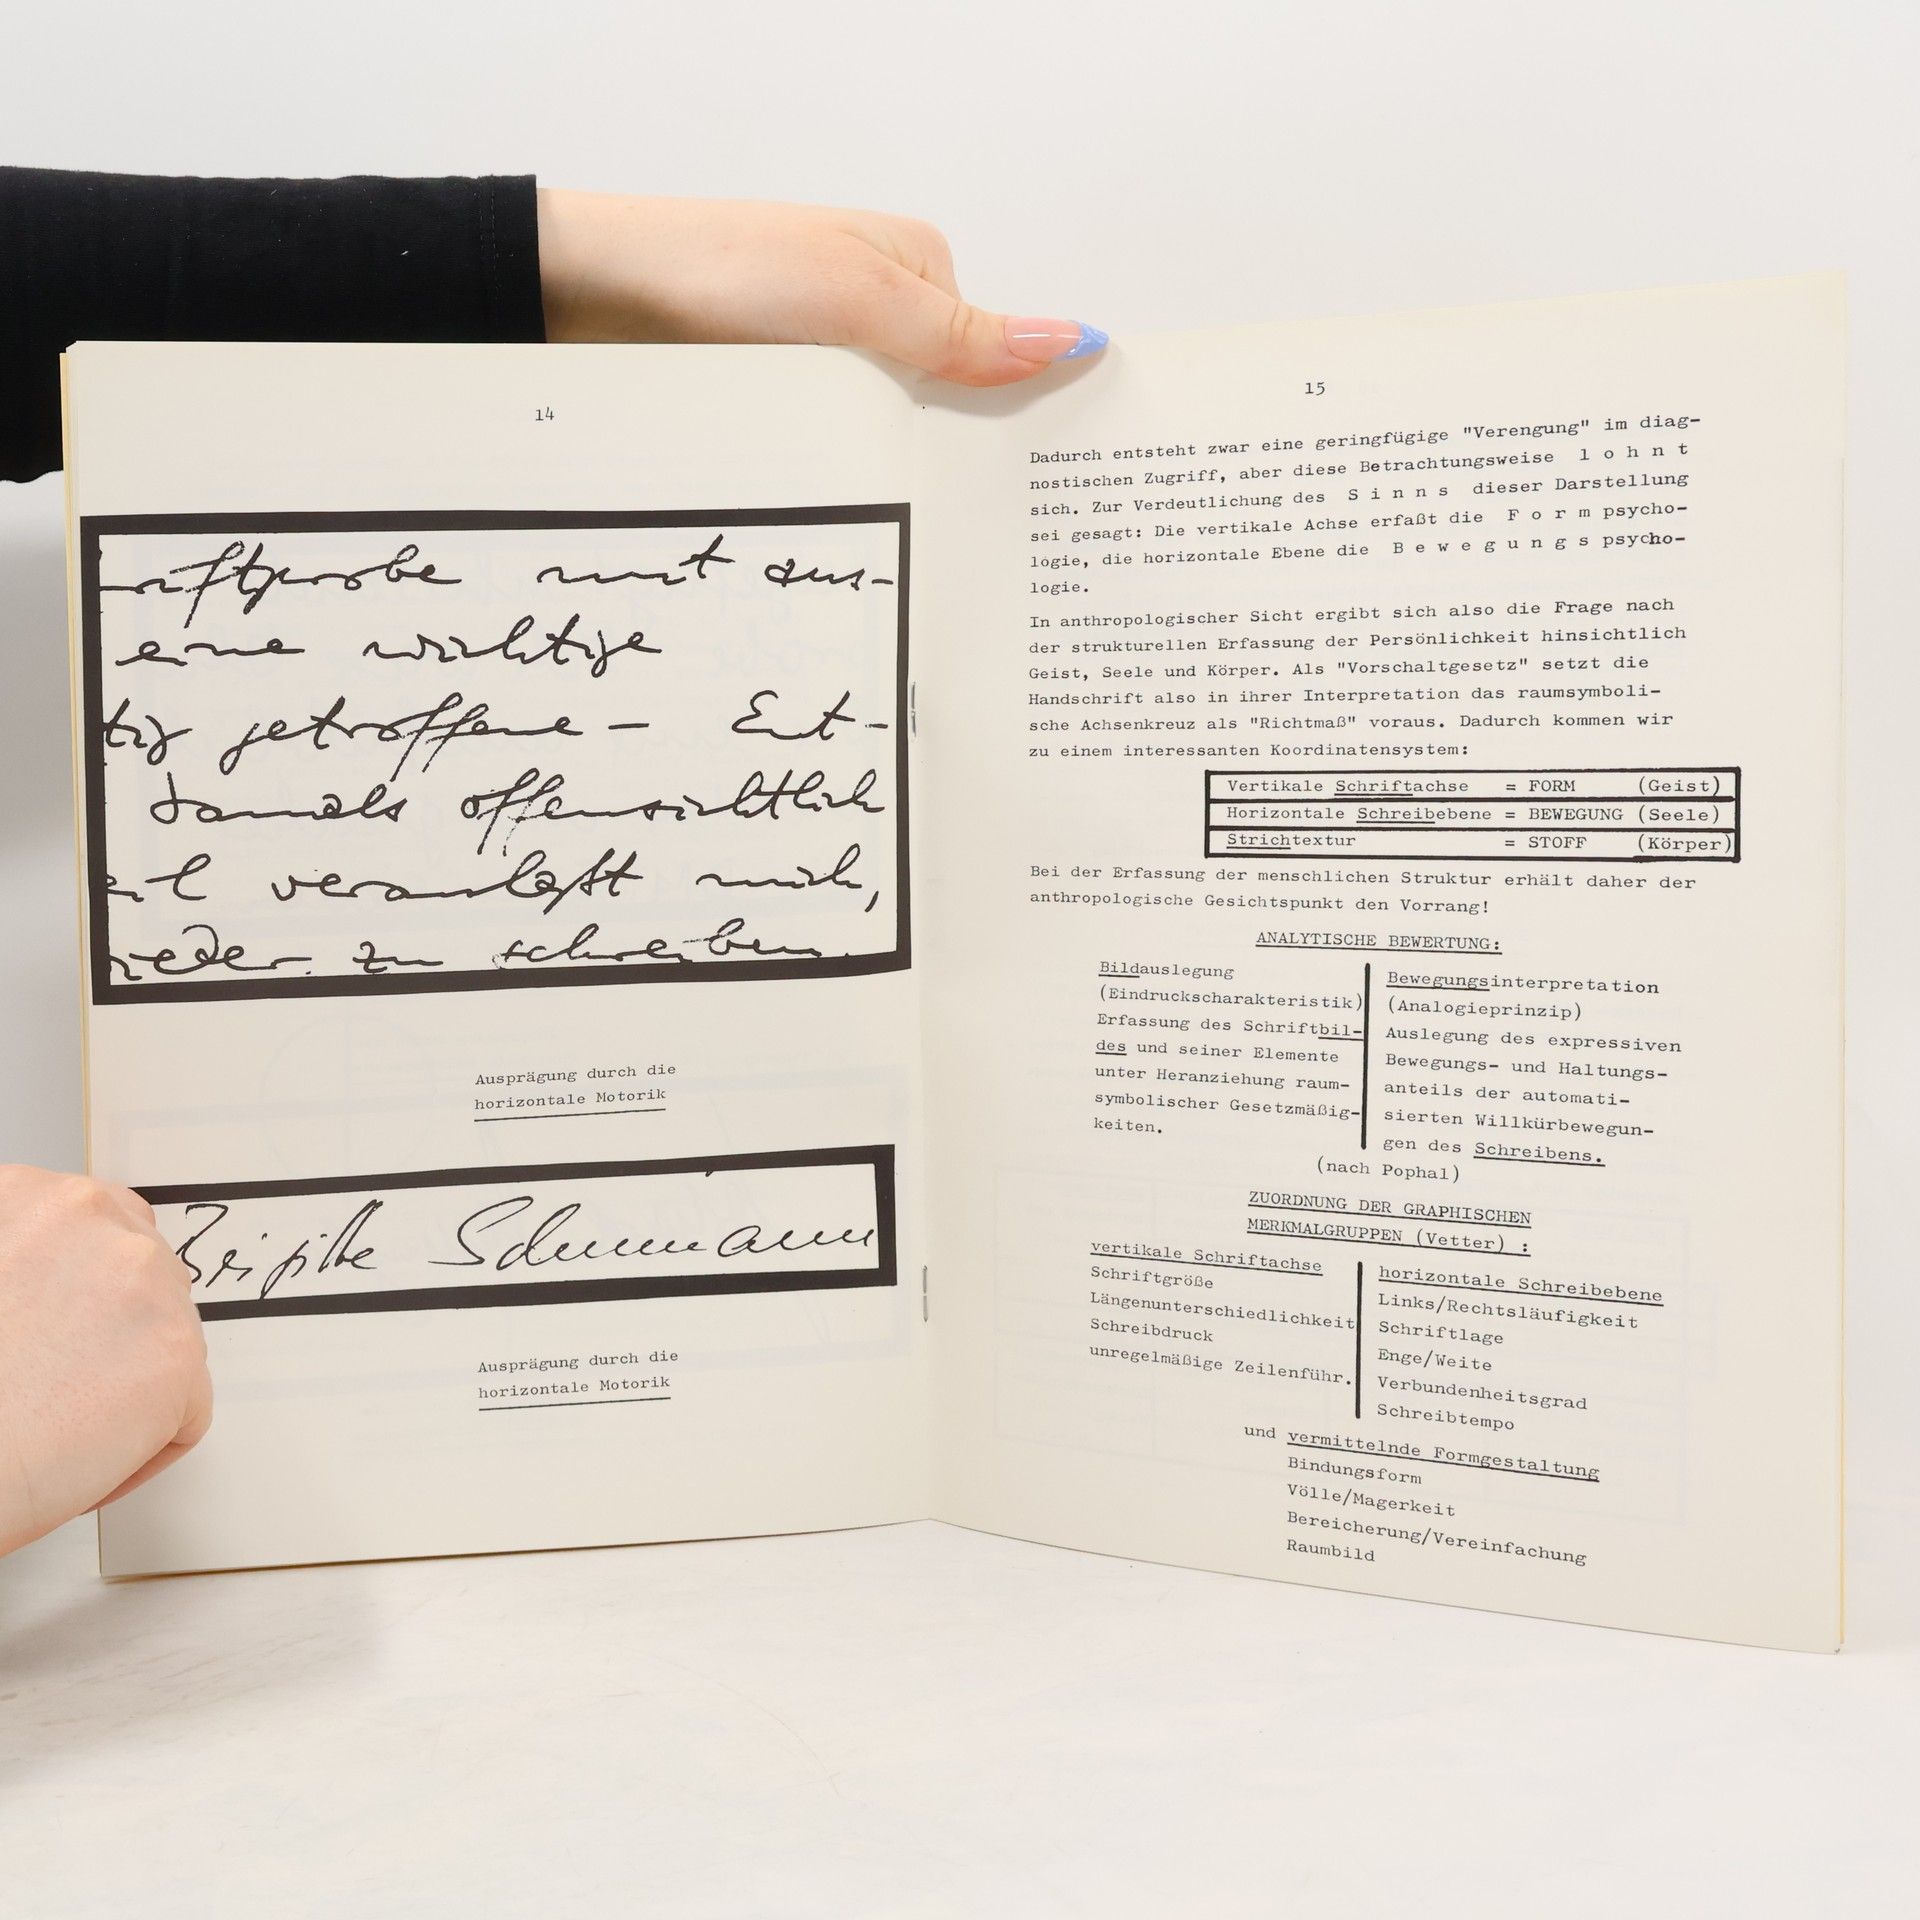 14
mit aus-
eine wichtige
tig getroffene - Ent-
damals offensichtlich
veranlaßt mich,
zu schreiben.
Ausprägung durch die
horizontale Motorik
Brigitte Schumann
Ausprägung durch die
horizontale Motorik
15
Dadurch entsteht zwar eine geringfügige "Verengung" im diag-
nostischen Zugriff, aber diese Betrachtungsweise l o h n t
sich. Zur Verdeutlichung des S i n n s dieser Darstellung
sei gesagt: Die vertikale Achse erfaßt die F o r m psycho-
logie, die horizontale Ebene die B e w e g u n g s psycho-
logie.
In anthropologischer Sicht ergibt sich also die Frage nach
der strukturellen Erfassung der Persönlichkeit hinsichtlich
Geist, Seele und Körper. Als "Vorschaltgesetz" setzt die
Handschrift also in ihrer Interpretation das raumsymboli-
sche Achsenkreuz als "Richtmaß" voraus. Dadurch kommen wir
zu einem interessanten Koordinatensystem:
Vertikale Schriftachse = FORM (Geist)
Horizontale Schreibebene = BEWEGUNG (Seele)
Strichtextur = STOFF (Körper)
Bei der Erfassung der menschlichen Struktur erhält daher der
anthropologische Gesichtspunkt den Vorrang!
ANALYTISCHE BEWERTUNG:
Bildauslegung
(Eindruckscharakteristik)
Erfassung des Schriftbil-
des und seiner Elemente
unter Heranziehung raum-
symbolischer Gesetzmäßig-
keiten.
Bewegungsinterpretation
(Analogieprinzip)
Auslegung des expressiven
Bewegungs- und Haltungs-
anteils der automati-
sierten Willkürbewegun-
gen des Schreibens.
(nach Pophal)
ZUORDNUNG DER GRAPHISCHEN
MERKMALGRUPPEN (Vetter) :
vertikale Schriftachse
Schriftgröße
Längenunterschiedlichkeit
Schreibdruck
unregelmäßige Zeilenführ.
horizontale Schreibebene
Links/Rechtsläufigkeit
Schriftlage
Enge/Weite
Verbundenheitsgrad
Schreibtempo
und vermittelnde Formgestaltung
Bindungsform
Völle/Magerkeit
Bereicherung/Vereinfachung
Raumbild